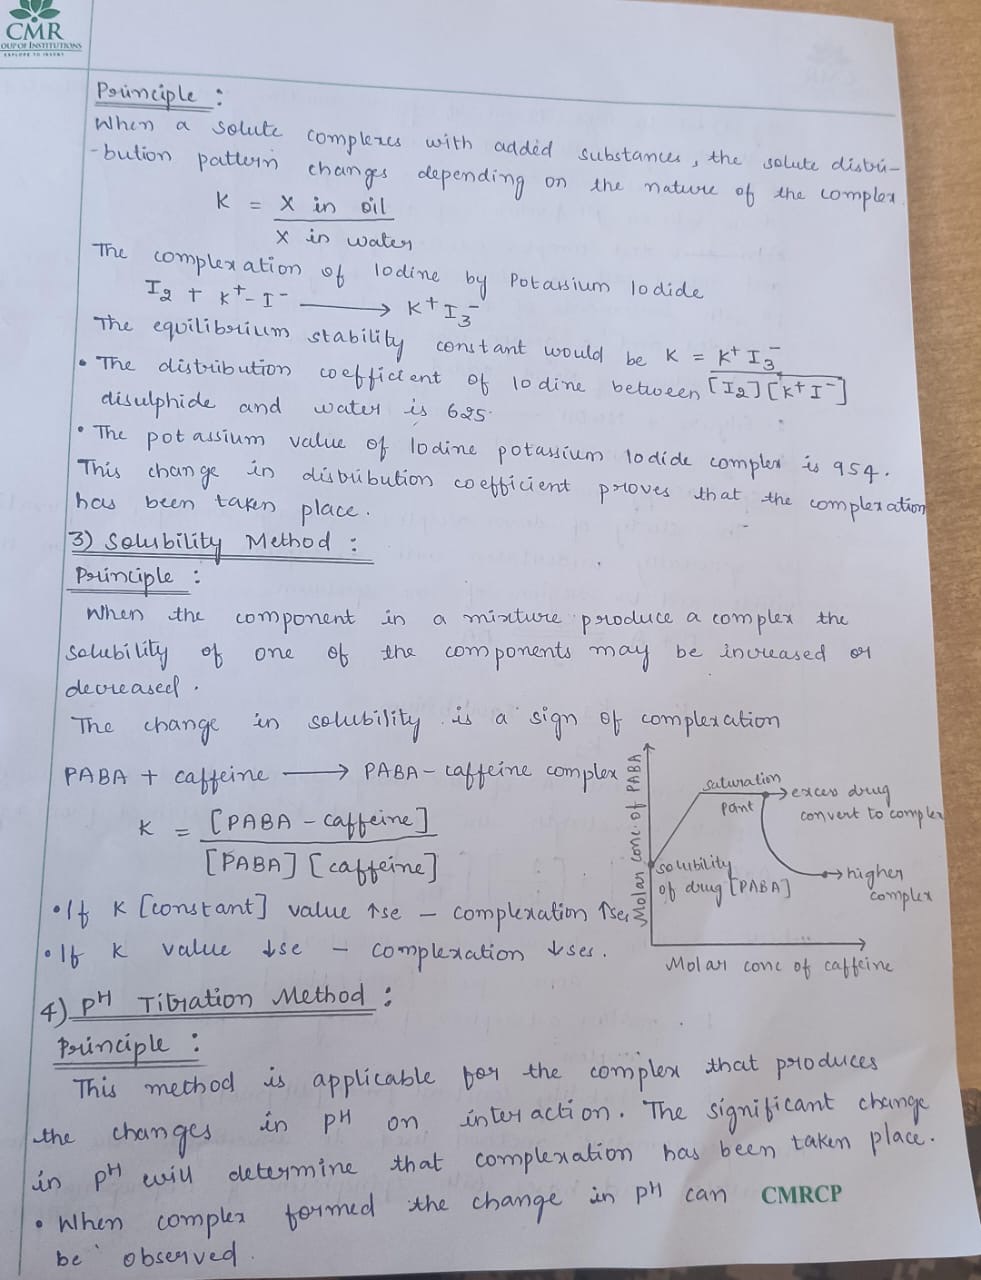 CMR
OUP OF INSTITUTIONS
EXPLORE TO INVENT
Principle :
When a solute complexes with added substances, the solute distri-
-bution pattern changes depending on the nature of the complex.
K = X in oil
X in water
The complexation of Iodine by Potassium Iodide
I2 + K+-I- ⟶ K+I3-
The equilibrium stability constant would be K = K+ I3-
[I2] [K+I-]
• The distribution coefficient of Iodine between
disulphide and water is 625.
• The potassium value of Iodine potassium Iodide complex is 954.
This change in distribution coefficient proves that the complexation
has been taken place.
3) Solubility Method :
Principle :
When the component in a mixture produce a complex the
Solubility of one of the components may be increased or
decreased.
The change in solubility is a sign of complexation
PABA + caffeine ⟶ PABA-caffeine complex
K = [PABA-caffeine]
[PABA] [caffeine]
• If K [constant] value ↑se - complexation ↑ses
• If K value ↓se - complexation ↓ses.
Molar conc. of PABA
saturation
point
excess drug
convert to complex
solubility
of drug [PABA]
higher
complex
Molar conc of caffeine
4) PH Titration Method :
Principle :
This method is applicable for the complex that produces
the changes in PH on interaction. The significant change
in PH will determine that complexation has been taken place.
• When complex formed the change in PH can
be observed.
CMRCP